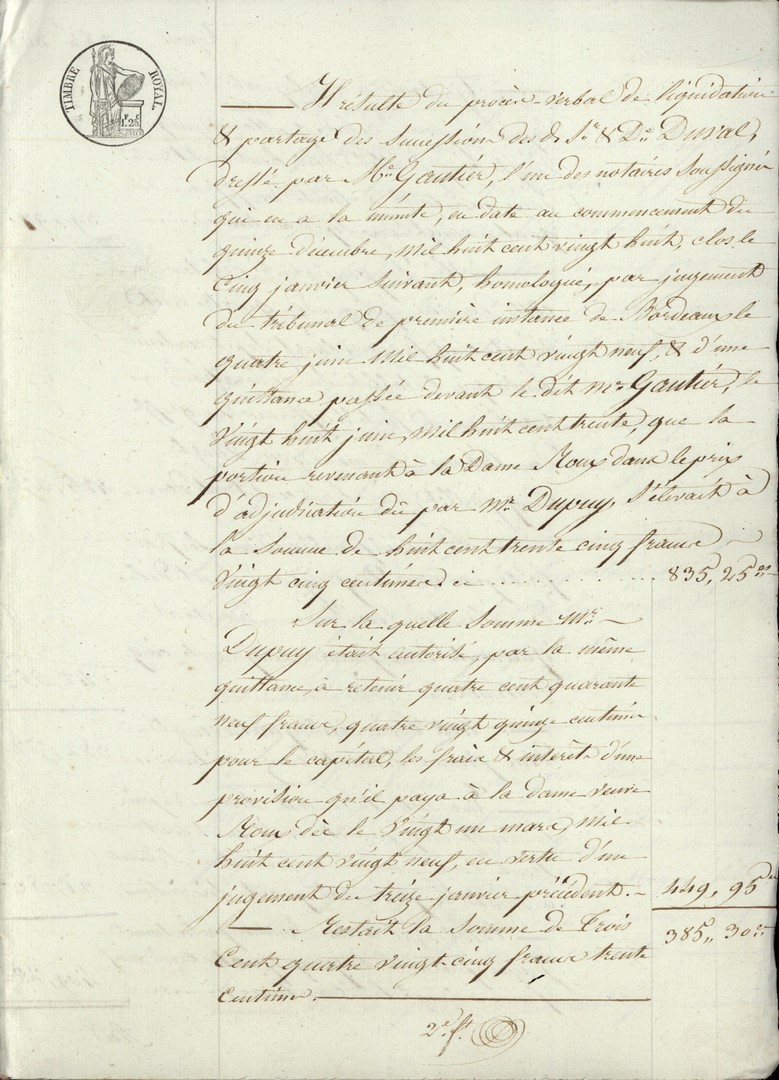 TIMBRE ROYAL.
1f. 25c
Il résulte du procès-verbal de liquidation
& partage des successions des d. Sr. & De. Duval,
dressé par Me. Gautier, l'un des notaires soussignés
qui en a la minute, en date au commencement du
quinze décembre, mil huit cent vingt huit, clos le
cinq janvier suivant, homologué, par jugement
du tribunal de première instance de Bordeaux le
quatre juin mil huit cent vingt neuf, & d'une
quittance passée devant le dit Me. Gautier, le
vingt huit juin, mil huit cent trente, que la
portion revenant à la Dame Roux dans le prix
d'adjudication dû par Mr. Dupuy, s'élevait à
la somme de huit cent trente cinq francs
vingt cinq centimes. ci .......... 835, 25es
Sur la quelle somme Mr.
Dupuy était autorisé, par la même
quittance, à retenir quatre cent quarante
neuf francs, quatre vingt quinze centimes
pour le capital, les frais & intérêts d'une
provision qu'il paya à la dame veuve
Roux dès le vingt un mars, mil
huit cent vingt neuf, en vertu d'un
jugement du treize janvier précédent. 449, 95
Restait la somme de trois 385,, 30es
cent quatre vingt-cinq francs trente
centimes.
2e. ft.